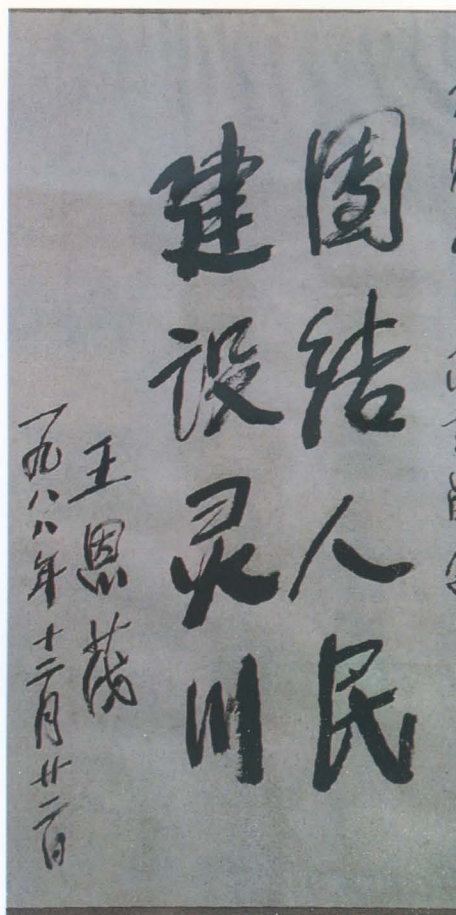 团结人民
建设灵川
王恩茂
一九八八年十二月廿二日